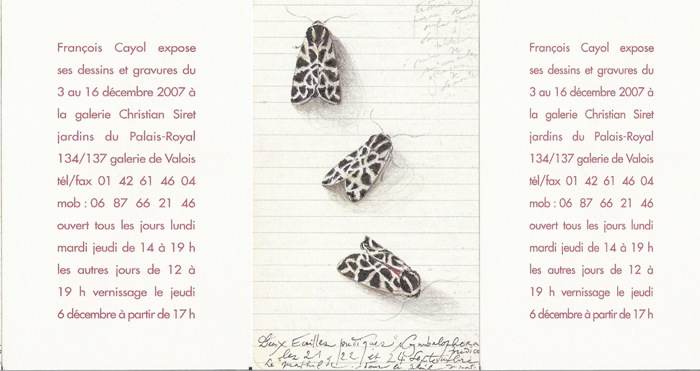 François Cayol expose
ses dessins et gravures du
3 au 16 décembre 2007 à
la galerie Christian Siret
jardins du Palais-Royal
134/137 galerie de Valois
tél/fax 01 42 61 46 04
mob : 06 87 66 21 46
ouvert tous les jours lundi
mardi jeudi de 14 à 19 h
les autres jours de 12 à
19 h vernissage le jeudi
6 décembre à partir de 17 h
Deux Ecailles pudiques Cymbalophora
pudica
les 21, 22 et 24 Septembre
François Cayol expose
ses dessins et gravures du
3 au 16 décembre 2007 à
la galerie Christian Siret
jardins du Palais-Royal
134/137 galerie de Valois
tél/fax 01 42 61 46 04
mob : 06 87 66 21 46
ouvert tous les jours lundi
mardi jeudi de 14 à 19 h
les autres jours de 12 à
19 h vernissage le jeudi
6 décembre à partir de 17 h